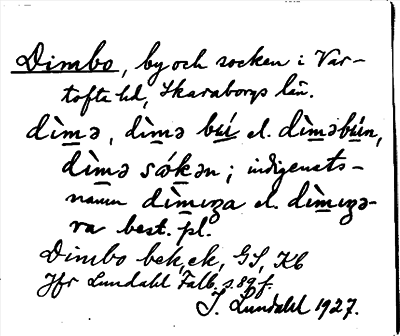 Dimbo, by och socken i Var-
tofta hd, Skaraborgs län.
dìmə, dìmə bý el. dìməbýn,
dìmə sókən; indigenats-
namn dìmıŋa el. dìmıŋə-
ra best. pl.
Dimbo bek, ek, GS, Kb
Jfr Lundahl Falb. s. 89 f.
I. Lundahl 1927.